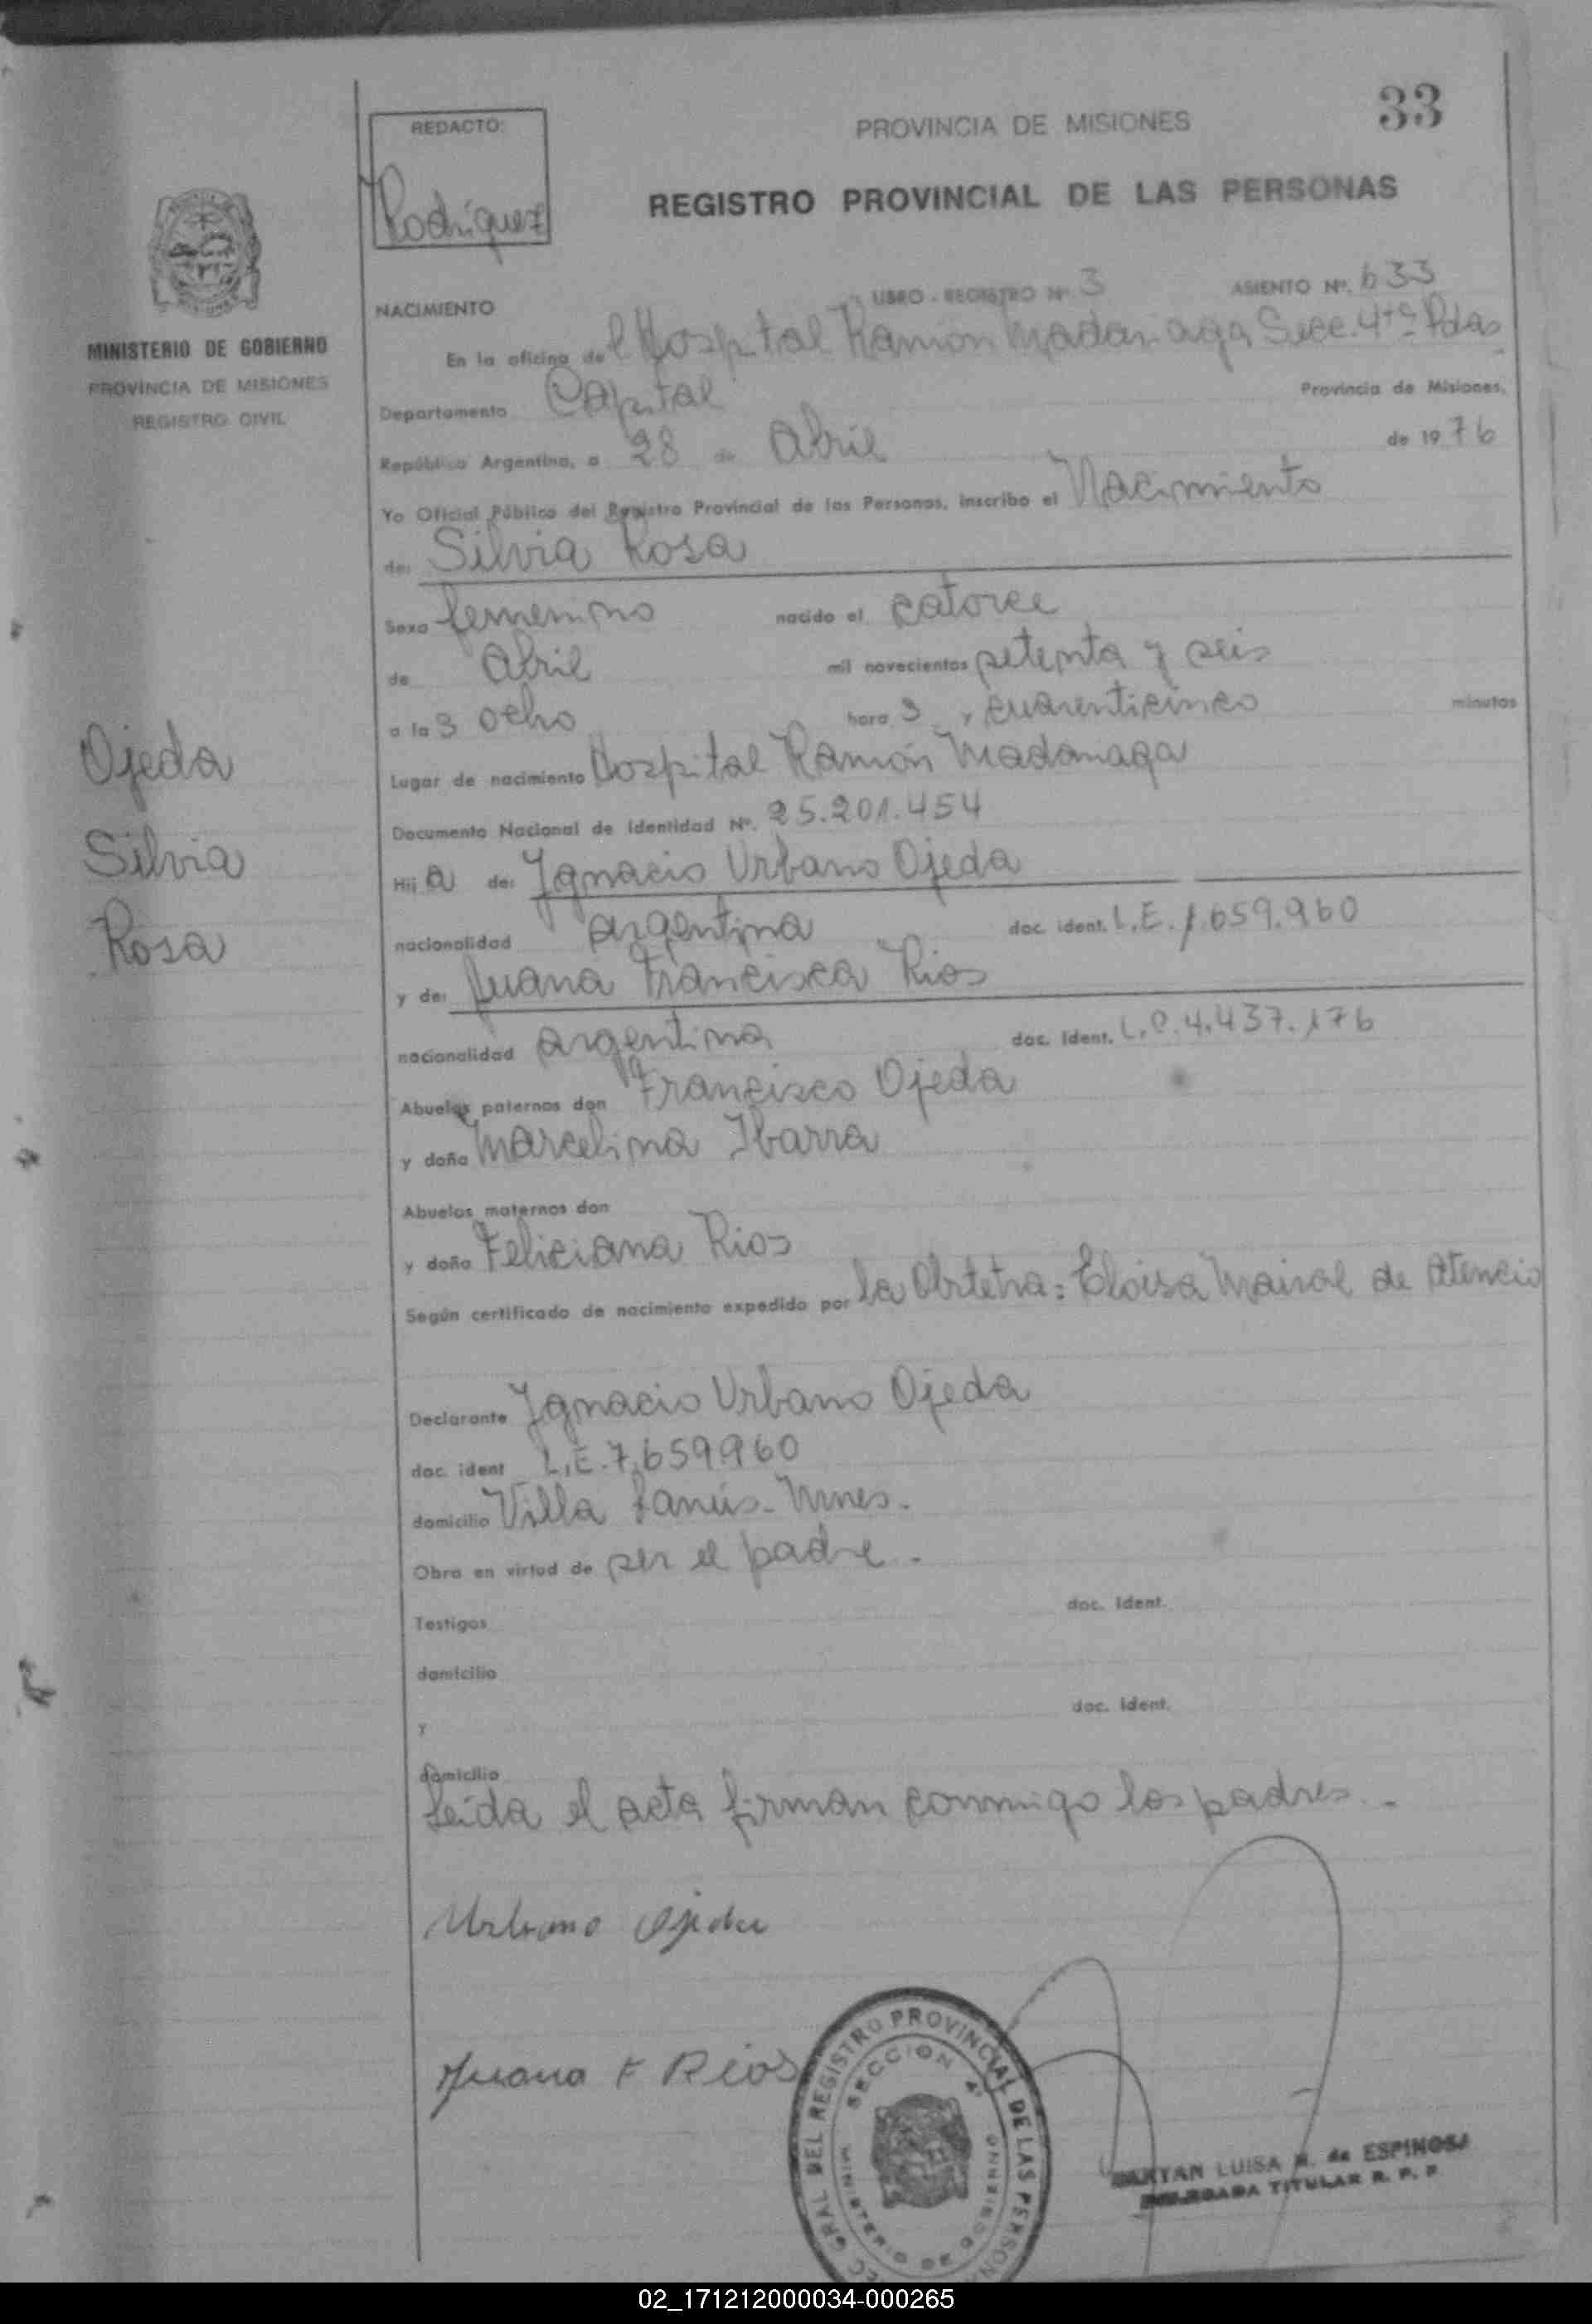 33
REDACTO:
Rodríguez
PROVINCIA DE MISIONES
REGISTRO PROVINCIAL DE LAS PERSONAS
MINISTERIO DE GOBIERNO
PROVINCIA DE MISIONES
REGISTRO CIVIL
NACIMIENTO LIBRO - REGISTRO Nº 3 ASIENTO Nº. 633
En la oficina del Hospital Ramón Madariaga Secc. 4ta Pdas
Departamento Capital Provincia de Misiones,
República Argentina, a 28 de Abril de 1976
Yo Oficial Público del Registro Provincial de las Personas, inscribo el Nacimiento
de: Silvia Rosa
Sexo femenino nacido el catorce
de Abril mil novecientos setenta y seis
a la s ocho hora s y cuarenticinco minutos
Lugar de nacimiento Hospital Ramón Madariaga
Documento Nacional de Identidad Nº. 25.201.454
Hij a de: Ignacio Urbano Ojeda
nacionalidad argentina doc. ident. L.E. 7.659.960
y de: Juana Francisca Rios
nacionalidad argentina doc. Ident. L.C. 4.437.176
Abuelos paternos don Francisco Ojeda
y doña Marcelina Ibarra
Abuelos maternos don
y doña Feliciana Rios
Según certificado de nacimiento expedido por la Obstetra: Eloisa Mairal de Atencio
Declarante Ignacio Urbano Ojeda
doc. ident L.E. 7.659.960
domicilio Villa Lanús - Mnes.
Obra en virtud de ser el padre.
Testigos doc. Ident.
domicilio
y doc. Ident.
domicilio
Leída el acta firman conmigo los padres.-
Ojeda
Silvia
Rosa
Urbano Ojeda
Juana F Rios
GRAL DEL REGISTRO PROVINCIAL DE LAS PERSON
SECCION 4ª
MINISTERIO DE GOBIERNO
LUISA de ESPINOSA
DELEGADA TITULAR R. P. P.
02_171212000034-000265